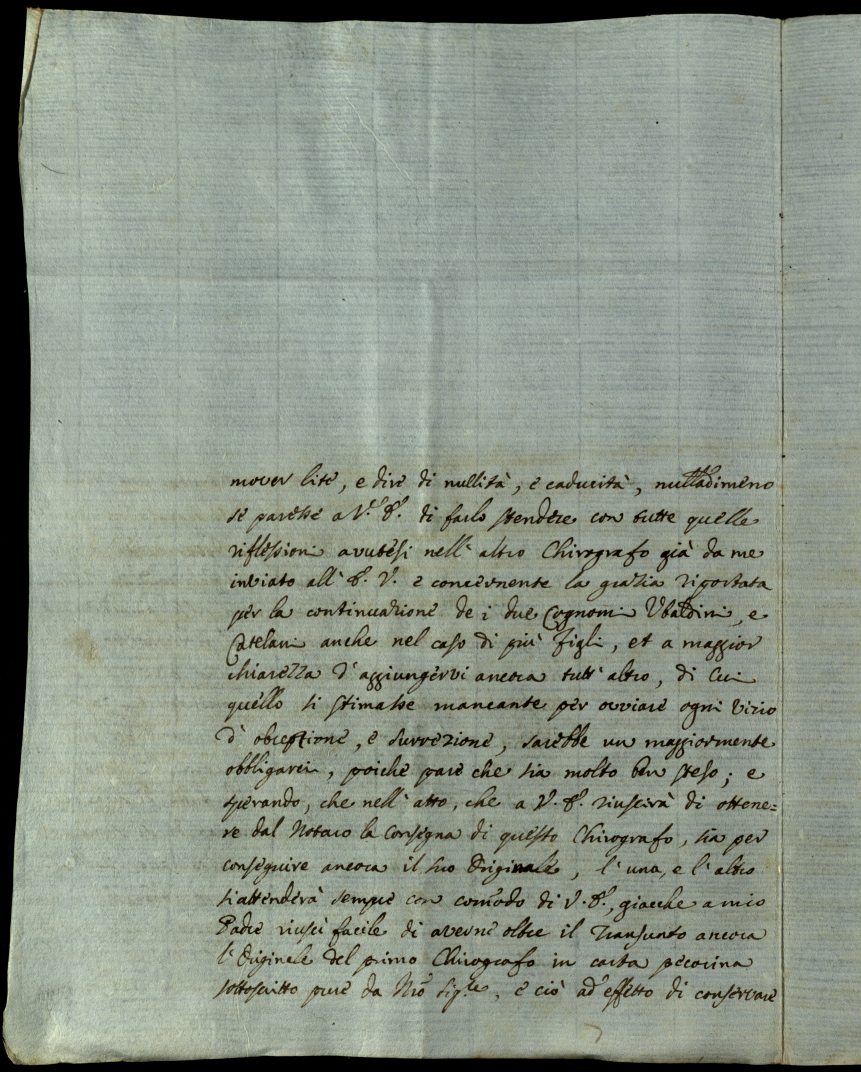 mover lite, e dire di nullità, e caducità, nulladimeno
se paresse a V.S. di farlo stendere con tutte quelle
riflessioni avutesi nell' altro Chirografo già da me
inviato all' S. V. e concernente la grazia riportata
per la continuazione de i due Cognomi Ubaldini, e
Catelani anche nel caso di più figli, et a maggior
chiarezza d' aggiungervi ancora tutt' altro, di cui
quello si stimasse mancante per ovviare ogni vizio
d' obreptione, e surrezione, sarebbe un maggiormente
obbligarci, poiche pare che sia molto ben steso; e
sperando, che nell' atto, che a V.S. riuscirà di ottene=
re dal Notaro la consegna di questo Chirografo, sia per
conseguire ancora il suo Originale, l' uno, e l' altro
s'attenderà sempre con comodo di V.S., giacche a mio
Padre riuscì facile di averne oltre il Transunto ancora
l' Originale del primo Chirografo in carta pecorina
sottoscritto pure da Nrô Sig.re, e ciò ad' effetto di conservare